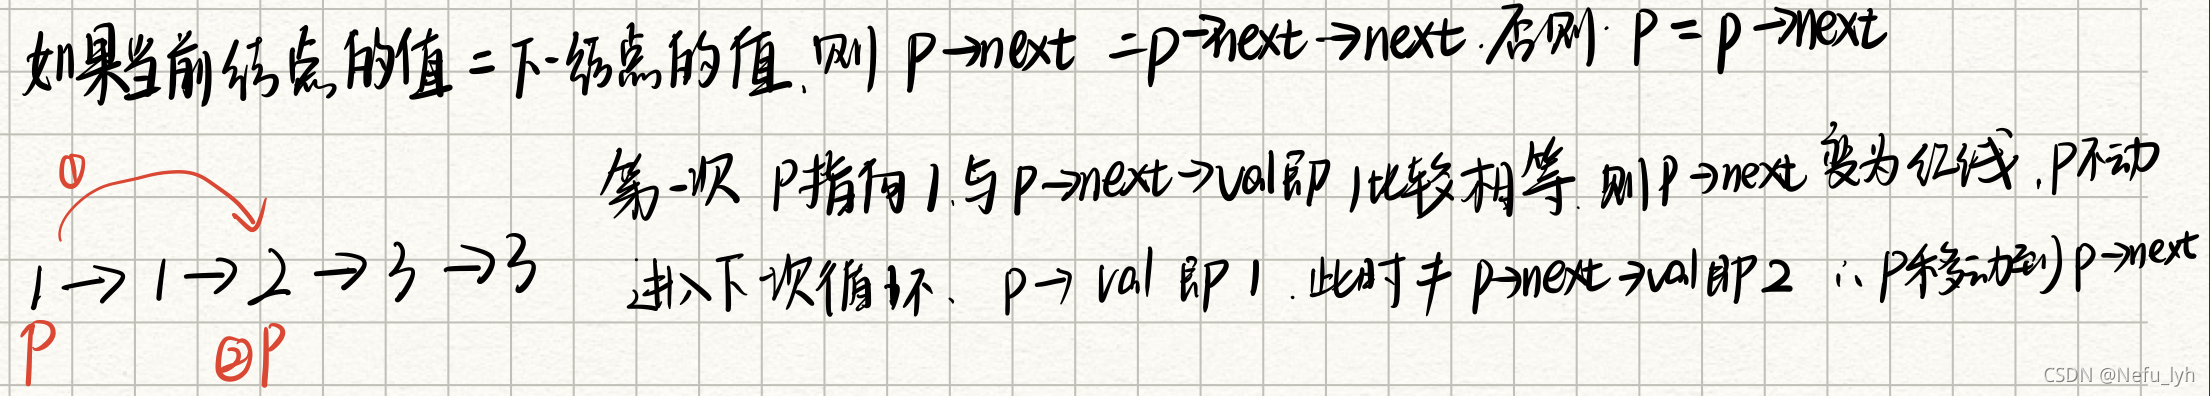 如果当前结点的值=下一结点的值、则 p→next =p→next→next.否则. p=p→next
① 第一次 p指向1.与p→next→val即1比较相等.则p→next变为红线.p不动
1→1→2→3→3 进入下一次循环、p→val即1.此时≠p→next→val即2 ∴p移动到p→next
p ②p
CSDN @Nefu_lyh